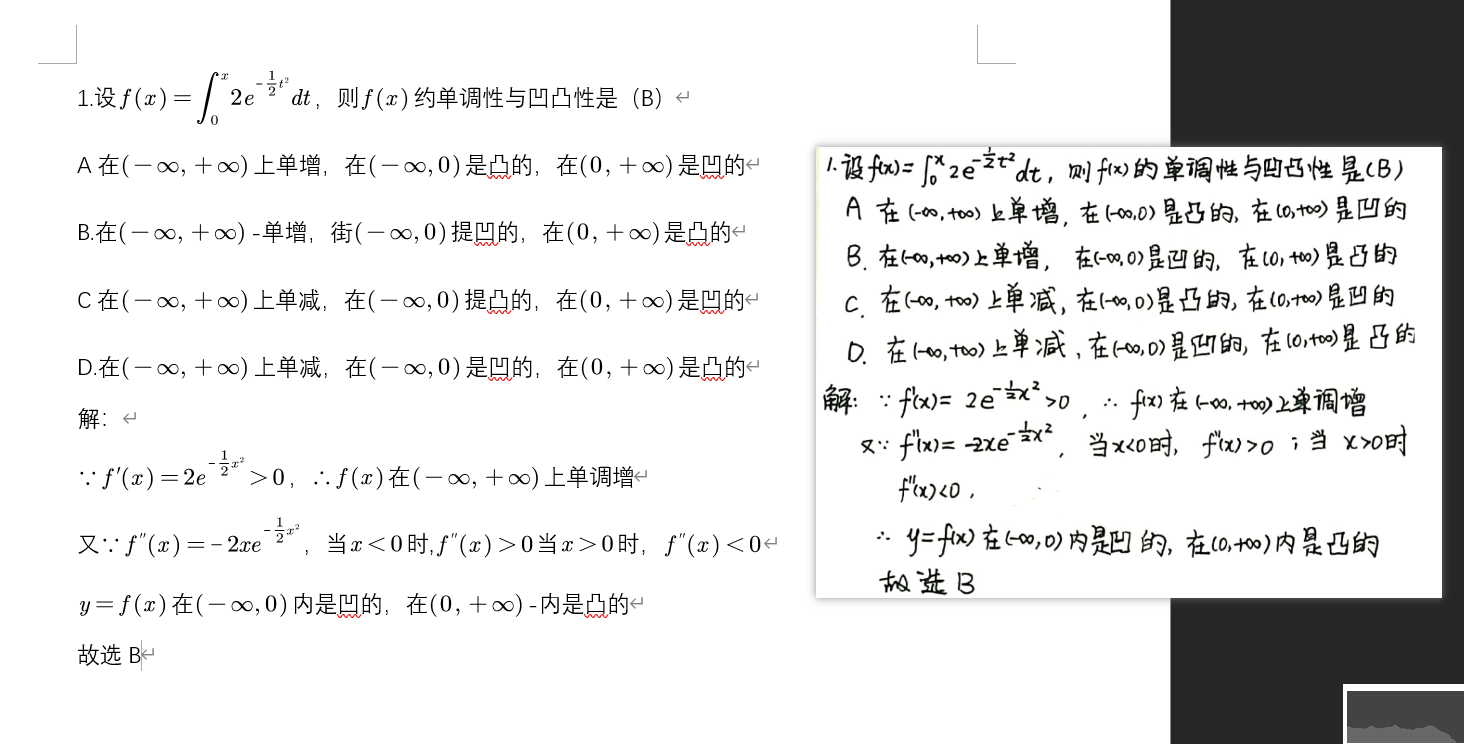 1.设f(x)=∫₀ˣ2e^{-\frac{1}{2}t²}dt，则f(x)约单调性与凹凸性是（B）
A 在(-∞,+∞)上单增，在(-∞,0)是凸的，在(0,+∞)是凹的
B.在(-∞,+∞)-单增，街(-∞,0)提凹的，在(0,+∞)是凸的
C 在(-∞,+∞)上单减，在(-∞,0)提凸的，在(0,+∞)是凹的
D.在(-∞,+∞)上单减，在(-∞,0)是凹的，在(0,+∞)是凸的
解：
∵f′(x)=2e^{-\frac{1}{2}x²}>0，∴f(x)在(-∞,+∞)上单调增
又∵f″(x)=-2xe^{-\frac{1}{2}x²}，当x<0时,f″(x)>0当x>0时，f″(x)<0
y=f(x)在(-∞,0)内是凹的，在(0,+∞)-内是凸的
故选 B
1.设f(x)=∫₀ˣ2e^{-\frac{1}{2}t²}dt，则f(x)的单调性与凹凸性是(B)
A 在(-∞,+∞)上单增，在(-∞,0)是凸的，在(0,+∞)是凹的
B.在(-∞,+∞)上单增，在(-∞,0)是凹的，在(0,+∞)是凸的
C.在(-∞,+∞)上单减，在(-∞,0)是凸的，在(0,+∞)是凹的
D.在(-∞,+∞)上单减，在(-∞,0)是凹的，在(0,+∞)是凸的
解：∵f′(x)=2e^{-\frac{1}{2}x²}>0，∴f(x)在(-∞,+∞)上单调增
又∵f″(x)=-2xe^{-\frac{1}{2}x²}，当x<0时，f″(x)>0；当x>0时
f″(x)<0，
∴y=f(x)在(-∞,0)内是凹的，在(0,+∞)内是凸的
故选B